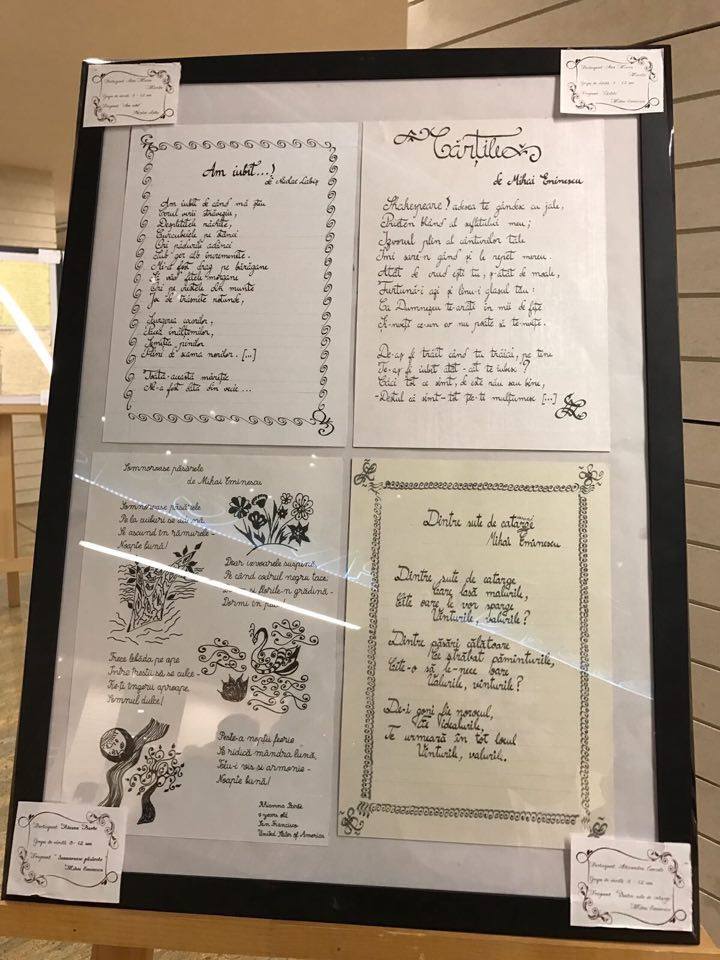 Participant: Ana Maria
Grupa de vârstă: 8 - 12 ani
Fragment: "Am iubit"
Nicolae Labiș
Participant: Ana Maria
Grupa de vârstă: 8 - 12 ani
Fragment: "Cărțile"
Mihai Eminescu
Am iubit...!
de Nicolae Labiș
Am iubit de când mă știu
Cerul verii străveziu,
Despletitele răchite,
Curcubeiele pe stânci
Ori pădurile adânci
Sub ger alb încremenite.
Mi-a fost drag pe bărăgane
Să văd fetele-morgane
Ori pe crestele din munte
Joc de trăsnete rotunde,
Limpezia
Pacea înălțimilor,
Semeția pinilor
Plini de scama norilor. [...]
Toată această măreție
Ne-a fost dată din vecie...
Cărțile
de Mihai Eminescu
Shakespeare! adesea te gândesc cu jale,
Prieten blând al sufletului meu;
Izvorul plin al cânturilor tale
Îmi sare-n gând și le repet mereu.
Atât de crud ești tu, ș-atât de moale,
Furtună-i azi și linu-i glasul tău:
Ca Dumnezeu te-arăți în mii de fețe
Și-nveți ce-un ev nu poate să te-nvețe.
De-aș fi trăit când tu trăiai, pe tine
Te-aș fi iubit atât - cât te iubesc?
Căci tot ce simt, de este rău sau bine,
- Destul că simt - tot ție-ți mulțumesc [...]
Somnoroase păsărele
de Mihai Eminescu
Somnoroase păsărele
Pe la cuiburi se adună,
Se ascund în rămurele -
Noapte bună!
Doar izvoarele suspină,
Pe când codrul negru tace;
Dorm și florile-n grădină -
Dormi în pace!
Trece lebăda pe ape
Între trestii să se culce -
Fie-ți îngerii aproape,
Somnul dulce!
Peste-a nopții feerie
Se ridică mândra lună,
Totu-i vis și armonie -
Noapte bună!
9 years old
San Francisco
United States of America
Dintre sute de catarge
Mihai Eminescu
Dintre sute de catarge
Care lasă malurile,
Câte oare le vor sparge
Vânturile, valurile?
Dintre păsări călătoare
Ce străbat pământurile,
Câte-o să le-nece oare
Valurile, vânturile?
De-i goni fie norocul,
Fie idealurile,
Te urmează în tot locul
Vânturile, valurile.
Participant:
Grupa de vârstă: 8 - 12 ani
Fragment: "Somnoroase păsărele"
Mihai Eminescu
Participant: Alexandra
Grupa de vârstă: 8 - 12 ani
Fragment: "Dintre sute de catarge"
Mihai Eminescu